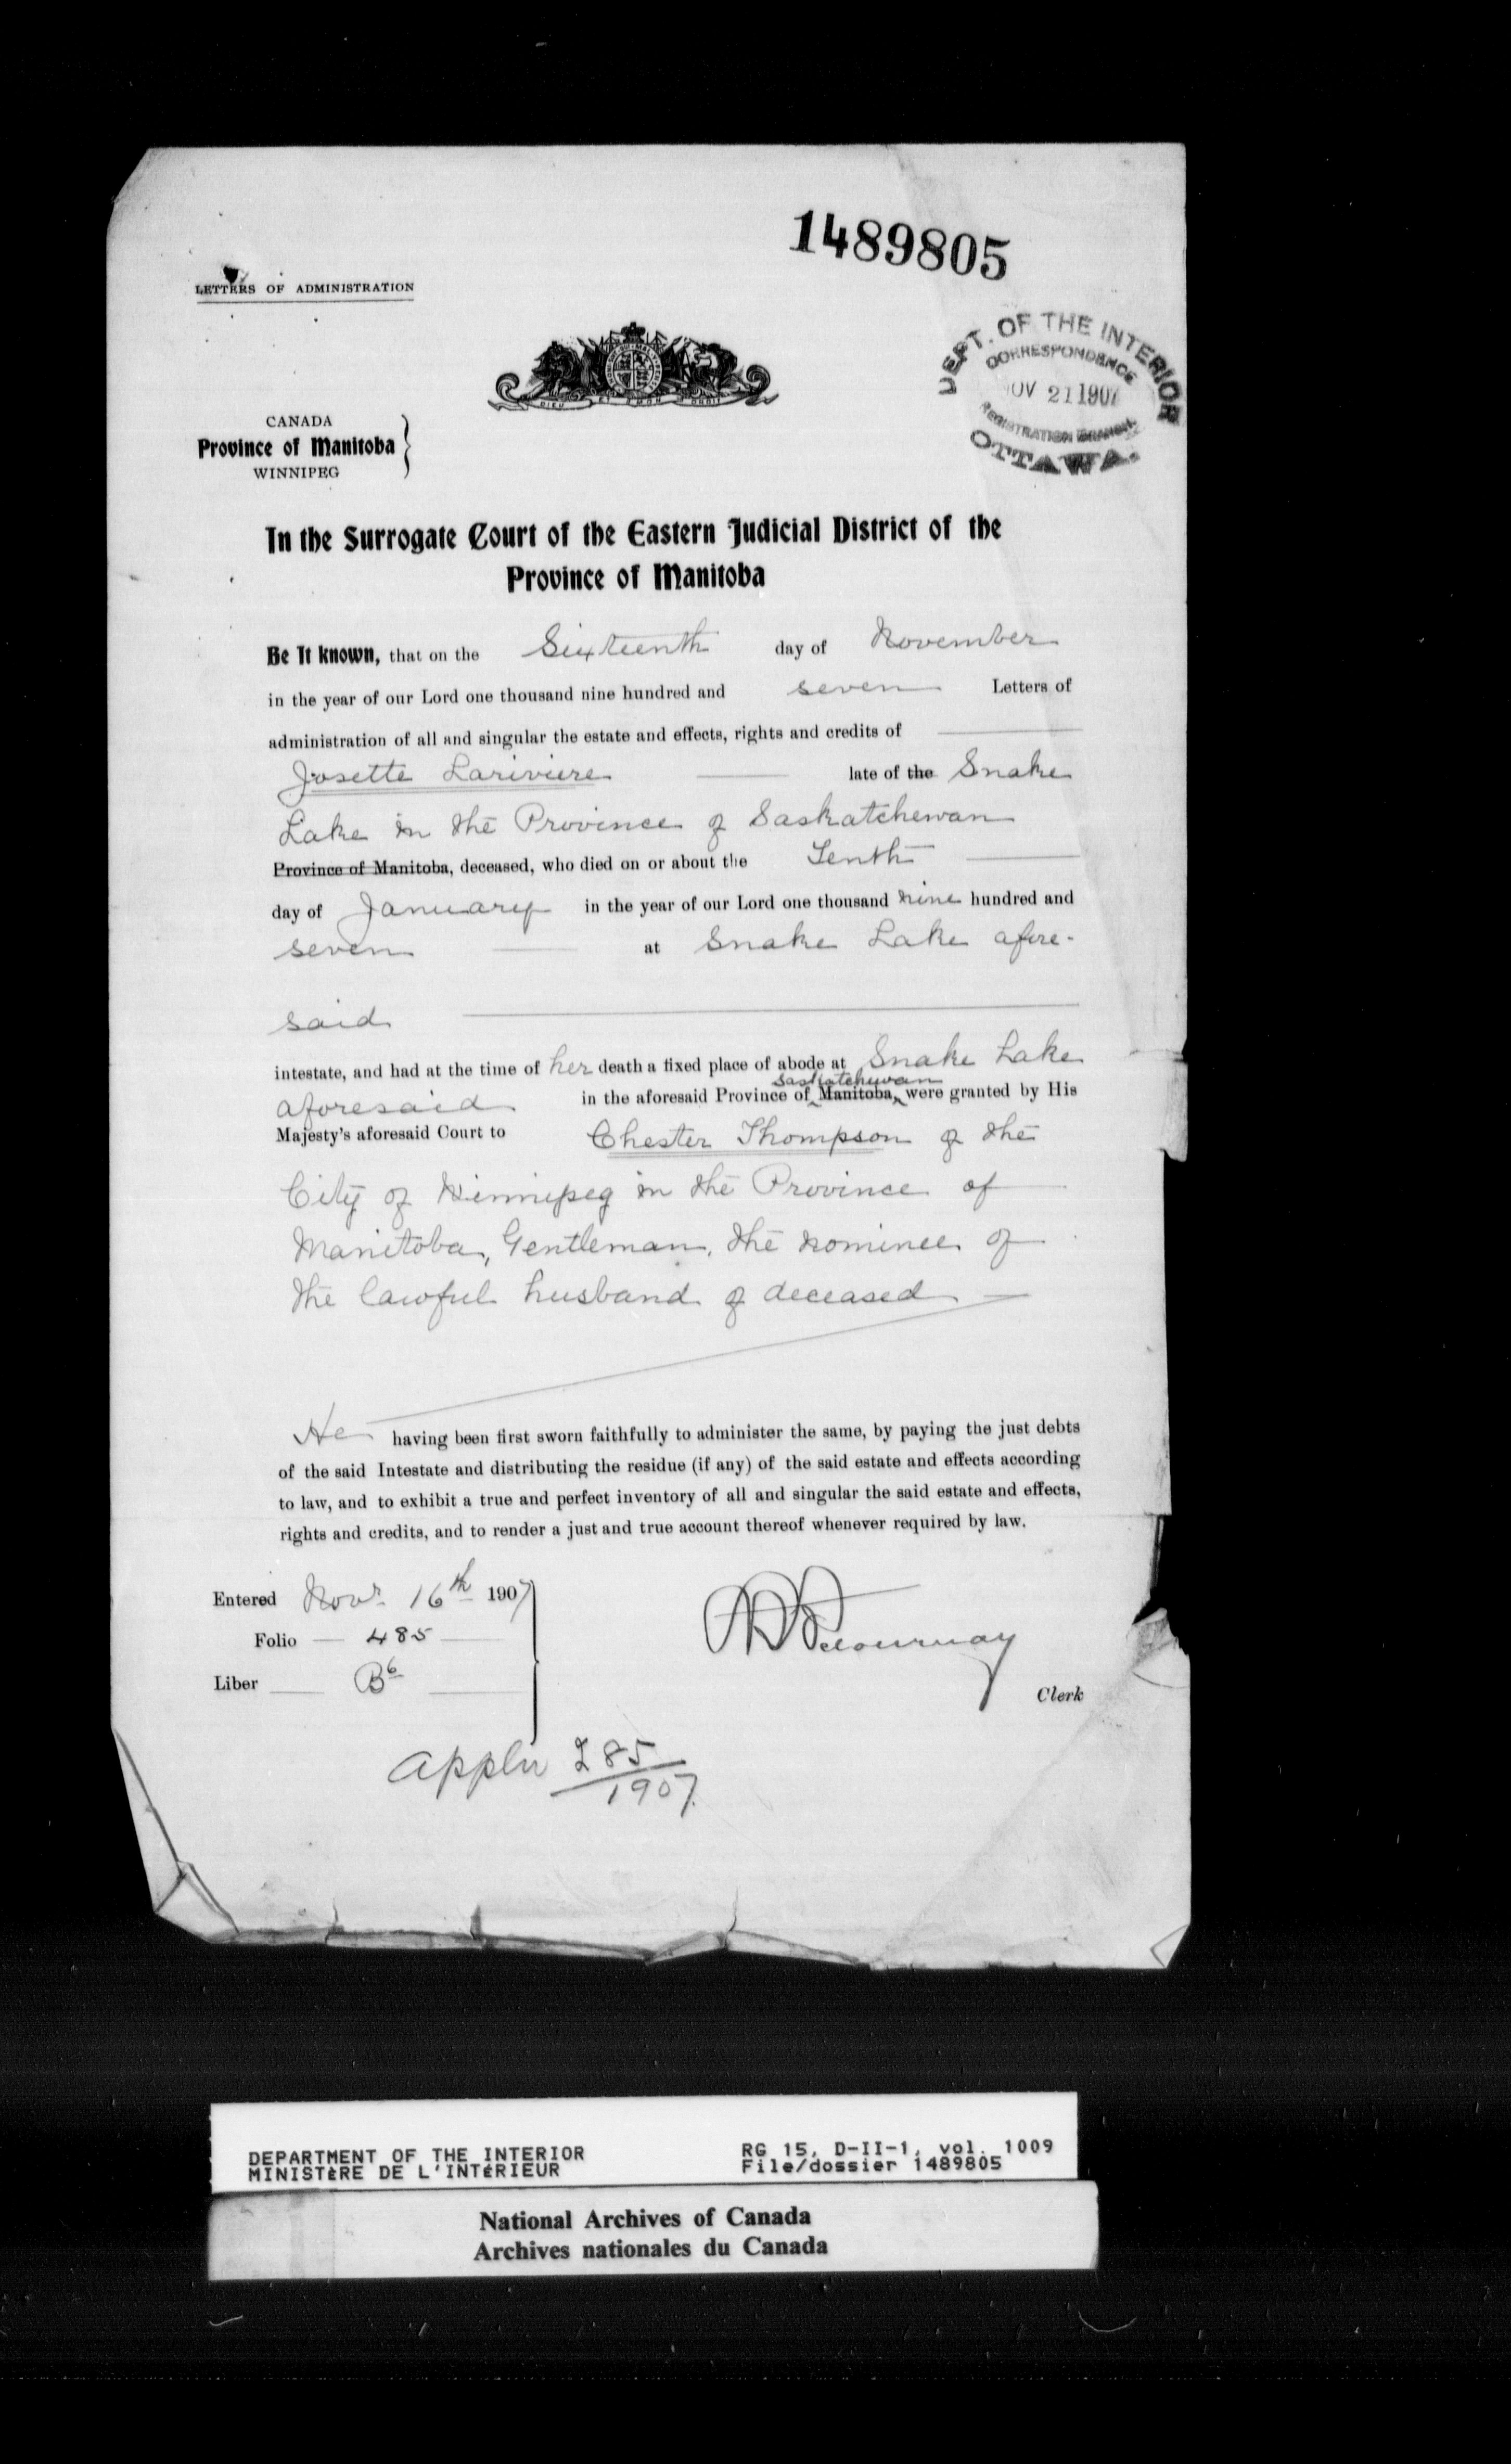 1489805
LETTERS OF ADMINISTRATION
DEPT. OF THE INTERIOR
CORRESPONDENCE
NOV 21 1907
REGISTRATION BRANCH
OTTAWA.
CANADA
Province of Manitoba
WINNIPEG
In the Surrogate Court of the Eastern Judicial District of the
Province of Manitoba
Be It known, that on the Sixteenth day of November
in the year of our Lord one thousand nine hundred and seven Letters of
administration of all and singular the estate and effects, rights and credits of
Josette Lariviere late of the Snake
Lake in the Province of Saskatchewan
Province of Manitoba, deceased, who died on or about the Tenth
day of January in the year of our Lord one thousand nine hundred and
seven at Snake Lake afore-
said
intestate, and had at the time of her death a fixed place of abode at Snake Lake
Saskatchewan
aforesaid in the aforesaid Province of Manitoba, were granted by His
Majesty's aforesaid Court to Chester Thompson of the
City of Winnipeg in the Province of
Manitoba, Gentleman, the nominee of
the lawful husband of deceased
He having been first sworn faithfully to administer the same, by paying the just debts
of the said Intestate and distributing the residue (if any) of the said estate and effects according
to law, and to exhibit a true and perfect inventory of all and singular the said estate and effects,
rights and credits, and to render a just and true account thereof whenever required by law.
Entered Novr 16th 1907
Folio 485
Liber B6
Clerk
Appln 285/1907
DEPARTMENT OF THE INTERIOR RG 15, D-II-1, vol. 1009
MINISTÈRE DE L'INTÉRIEUR File/dossier 1489805
National Archives of Canada
Archives nationales du Canada